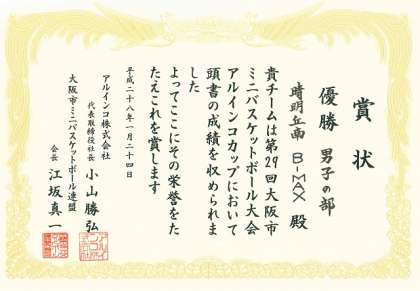 賞状
優勝 男子の部
晴明丘南 B-MAX 殿
貴チームは第29回大阪市
ミニバスケットボール大会
アルインコカップにおいて
頭書の成績を収められま
した
よってここにその栄誉をた
たえこれを賞します
平成二十八年一月二十四日
アルインコ株式会社
代表取締役社長 小山勝弘
大阪市ミニバスケットボール連盟
会長 江坂真一